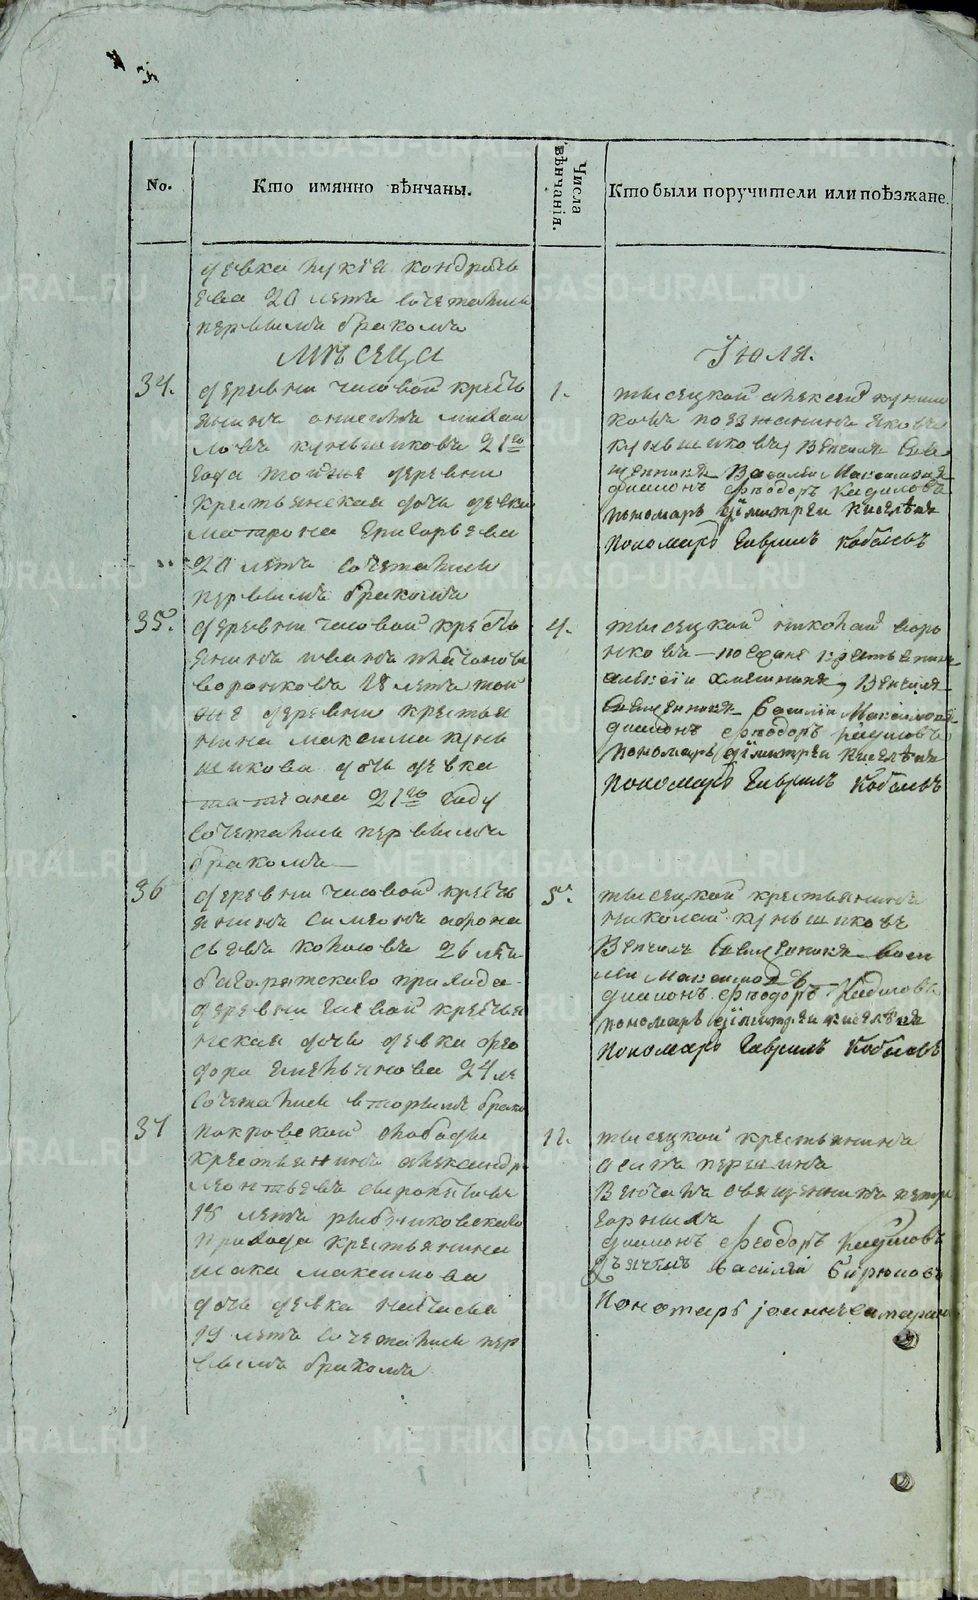 No.
Кто имянно вѣнчаны.
Числа вѣнчанія.
Кто были поручители или поѣзжане.
девка лукія кондрать
ева 20 летъ сочетались
первымъ бракомъ
Мѣсеца
Іюля.
34.
деревни часовой кресть
янинъ михаи
ловъ куньшиковъ 21го
года той же деревни
крестьянская дочь девка
матрона григорьева
20 летъ сочетались
первымъ бракомъ
1.
тысецкой алексей куньши
ковъ поезжанинъ яковъ
куньшиковъ, Венчалъ Свя
щенникъ Василій Максимовъ
диаконъ Феодоръ Кадиловъ
пономарь димитрей Киселевъ
пономарь Гаврилъ Кобылевъ
35.
деревни часовой кресть
янинъ иванъ
воронковъ 18 летъ той
же деревни крестья
нина максима кунь
шикова дочь девка
татьяна 21го году
сочетались первымъ
бракомъ
4.
тысецкой николай воро
нковъ поезжане крестьянинъ
алексеи Венчалъ
Священникъ Василіи Максимовъ
диаконъ Феодоръ Кадиловъ
пономарь димитреи Киселевъ
пономарь Гаврилъ Кобылевъ
36
деревни часовой кресть
янинъ симеонъ афона
сьевъ 26 летъ
багаряцкаго прихода
деревни гаевой крестья
нская дочь девка фео
дора емельянова 24 ле
сочетались вторымъ брако
5.
тысецкой крестьянинъ
николай куньшиковъ
Венчалъ Священникъ Васи
лій Максимовъ
диаконъ Феодоръ Кадиловъ
пономарь димитреи Киселевъ
пономарь Гаврилъ Кобылевъ
37
покровской слободы
крестьянинъ александръ
леонтьевъ
18 летъ рыбниковскаго
прихода крестьянина
исака максимова
дочь девка наталья
19 летъ сочетались пер
вымъ бракомъ
12.
тысецкой крестьянинъ
осипъ першинъ
Венчалъ священникъ петръ
горныхъ
диаконъ Феодоръ Кадиловъ
дьячекъ василій Бирюковъ
Пономарь Іоаннъ
METRIKI.GASO-URAL.RU